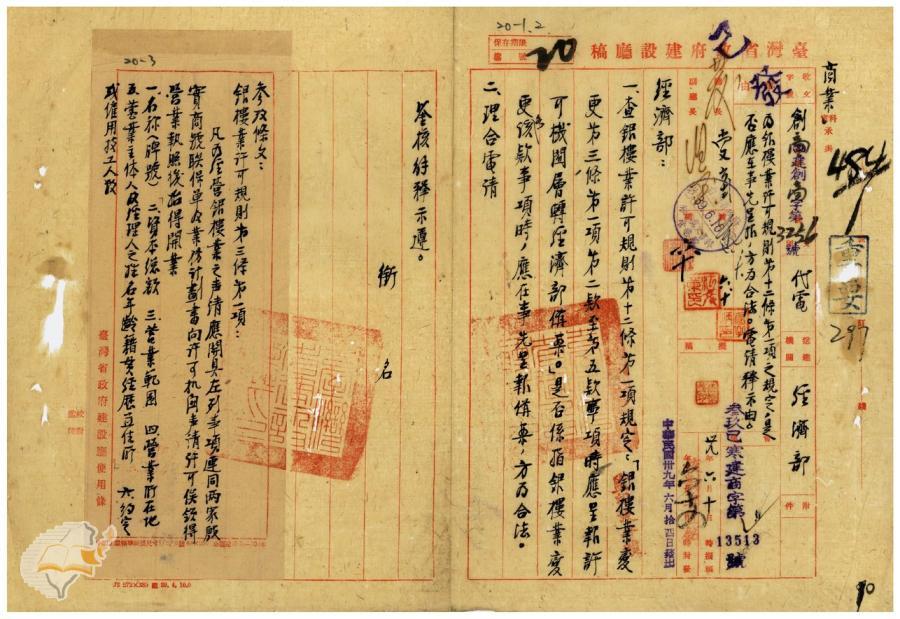 20-1.2
臺灣省政府建設廳稿
保存期限
號
20
商業
484
重要
297
發
創商建創商字第3256號
代電
送達機關
經濟部
附件
為銀樓業許可規則第十二條第一項之規定,是
否應在事先呈報,方為合法。電請釋示由。
廳長
副廳長
六十
叁玖巳寒建商字第
13513
號
中華民國卅九年六月拾四日發出
經濟部:
一、查銀樓業許可規則第十二條第一項規定:「銀樓業變
更第三條第一項第二款至第五款事項時應呈報許
可機關層轉經濟部備案」。是否係指銀樓業變
更該款事項時,應在事先呈報備案,方為合法。
二、理合電請
鉴核釋示遵。
銜 名
20-3
參攷條文:
銀樓業許可規則第三條第一項:
凡為經營銀樓業之聲請應開具左列事項連同兩家殷
實商號聯保單及業務計劃書向許可机關聲請許可俟領得
營業執照後始得開業
一名称(牌號) 二資本總額 三營業範圍 四營業所在地
五營業主体人及經理人之姓名年齡籍貫經歷及住所 六約定
或僱用技工人數
臺灣省政府建設廳便用條
90